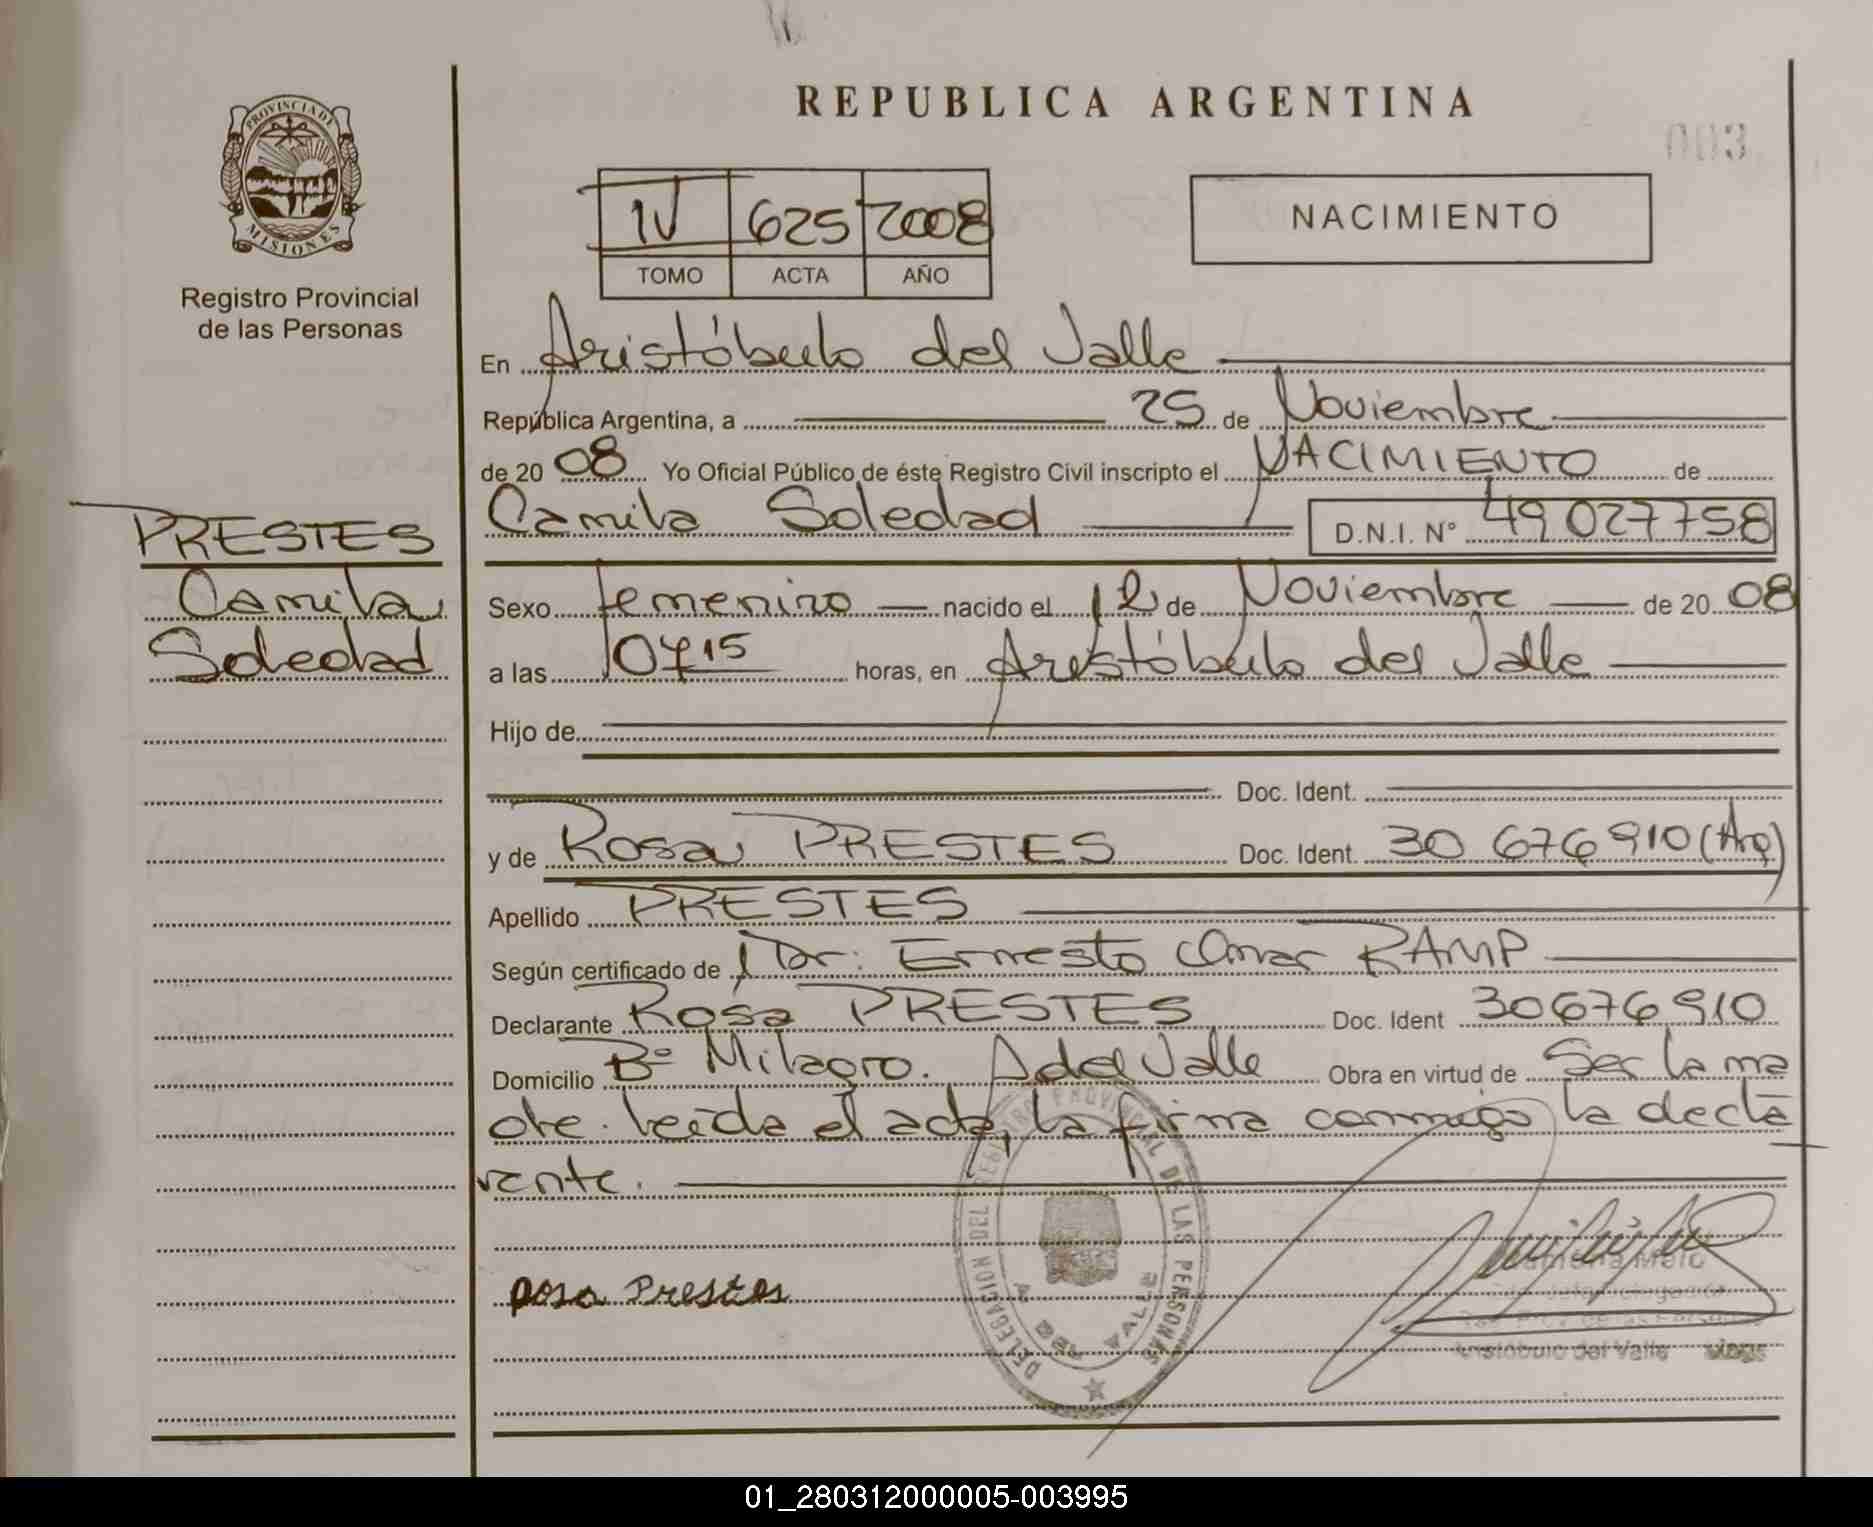 REPUBLICA ARGENTINA
003
PROVINCIA DE MISIONES
Registro Provincial
de las Personas
IV 625 2008
TOMO ACTA AÑO
NACIMIENTO
En Aristóbulo del Valle
República Argentina, a 25 de Noviembre
de 20 08 Yo Oficial Público de éste Registro Civil inscripto el NACIMIENTO de
PRESTES
Camila Soledad D.N.I. Nº 49 027758
Camila
Sexo femenino nacido el 12 de Noviembre de 20 08
Soledad
a las 0715 horas, en Aristóbulo del Valle
Hijo de
Doc. Ident.
y de Rosa PRESTES Doc. Ident. 30 676910 (Arg)
Apellido PRESTES
Según certificado de Dr: Ernesto Omar RAMP
Declarante Rosa PRESTES Doc. Ident 30676910
Domicilio Bº Milagro. A del Valle Obra en virtud de Ser la ma
dre. leída el acta, la firma conmigo la decla
rante.
DELEGACION DEL REGISTRO PROVINCIAL DE LAS PERSONAS
A DEL VALLE
Rosa Prestes
Ramona Melo
Aristóbulo del Valle Mnes
01_280312000005-003995